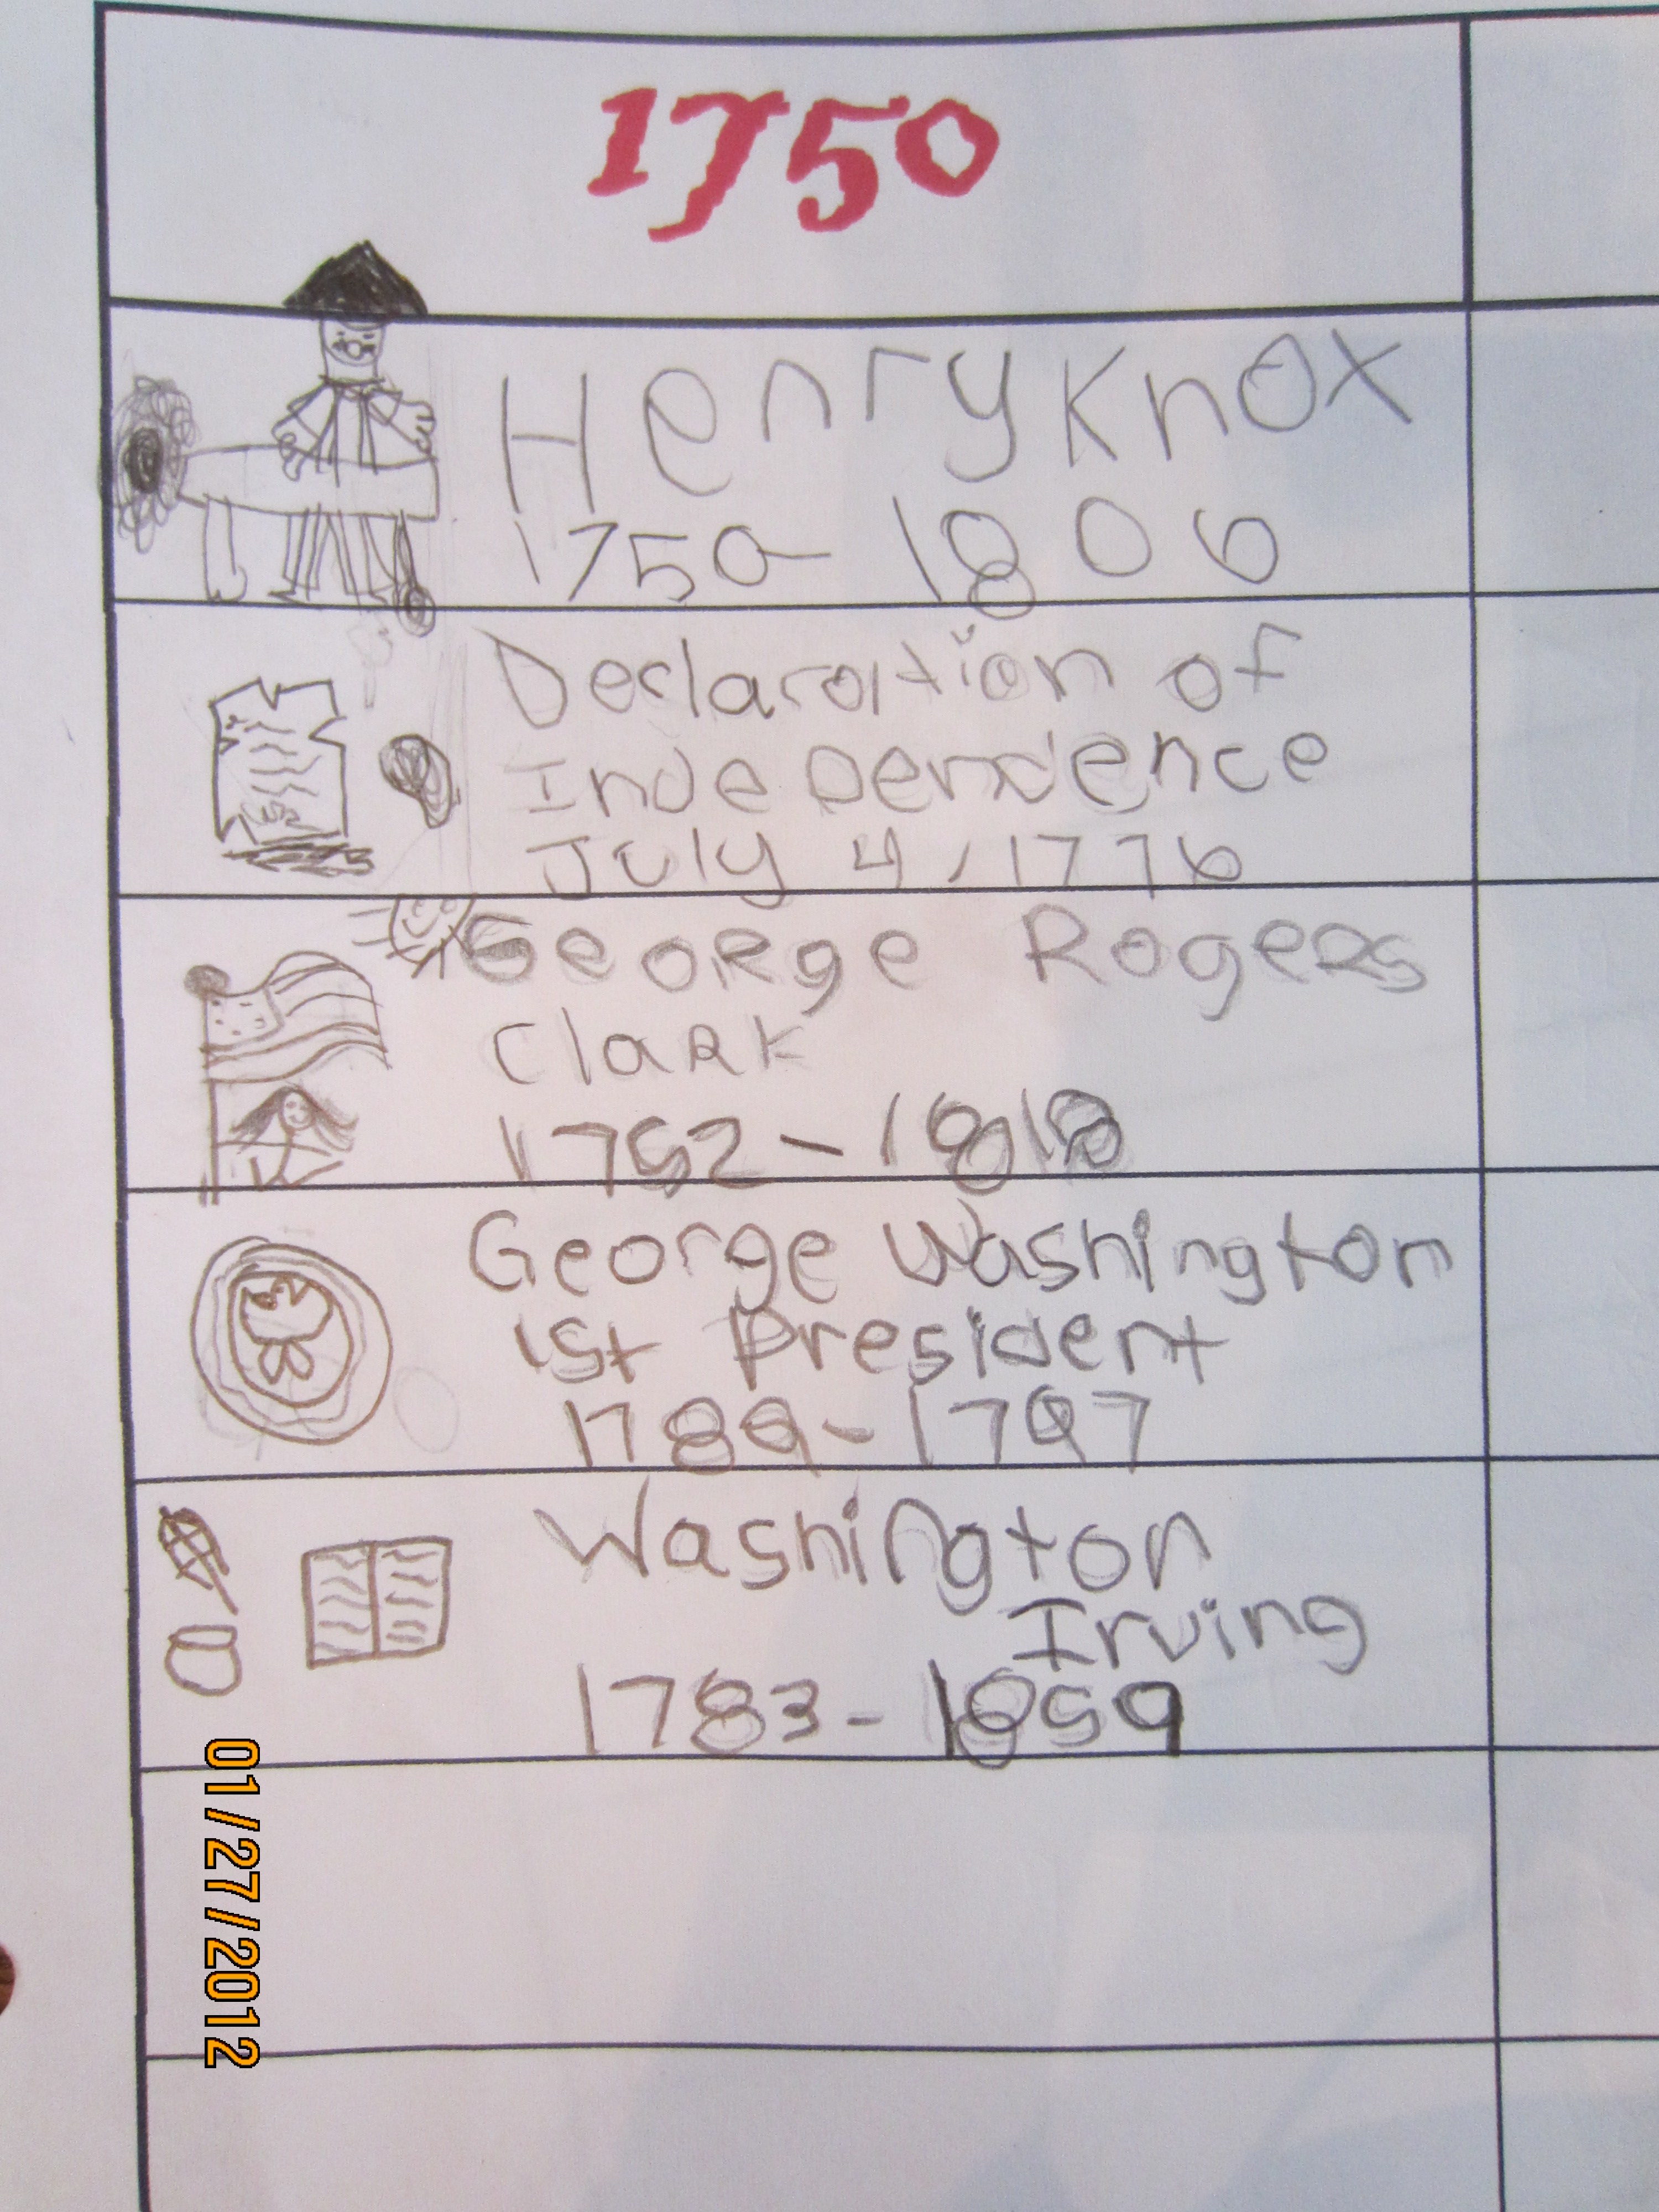 1750
Henry Knox
1750-1806
Declaration of
Independence
July 4, 1776
GeoRge RogeRs
ClaRk
1752-1818
George Washington
1st President
1789-1797
Washington
Irving
1783-1859
01/27/2012